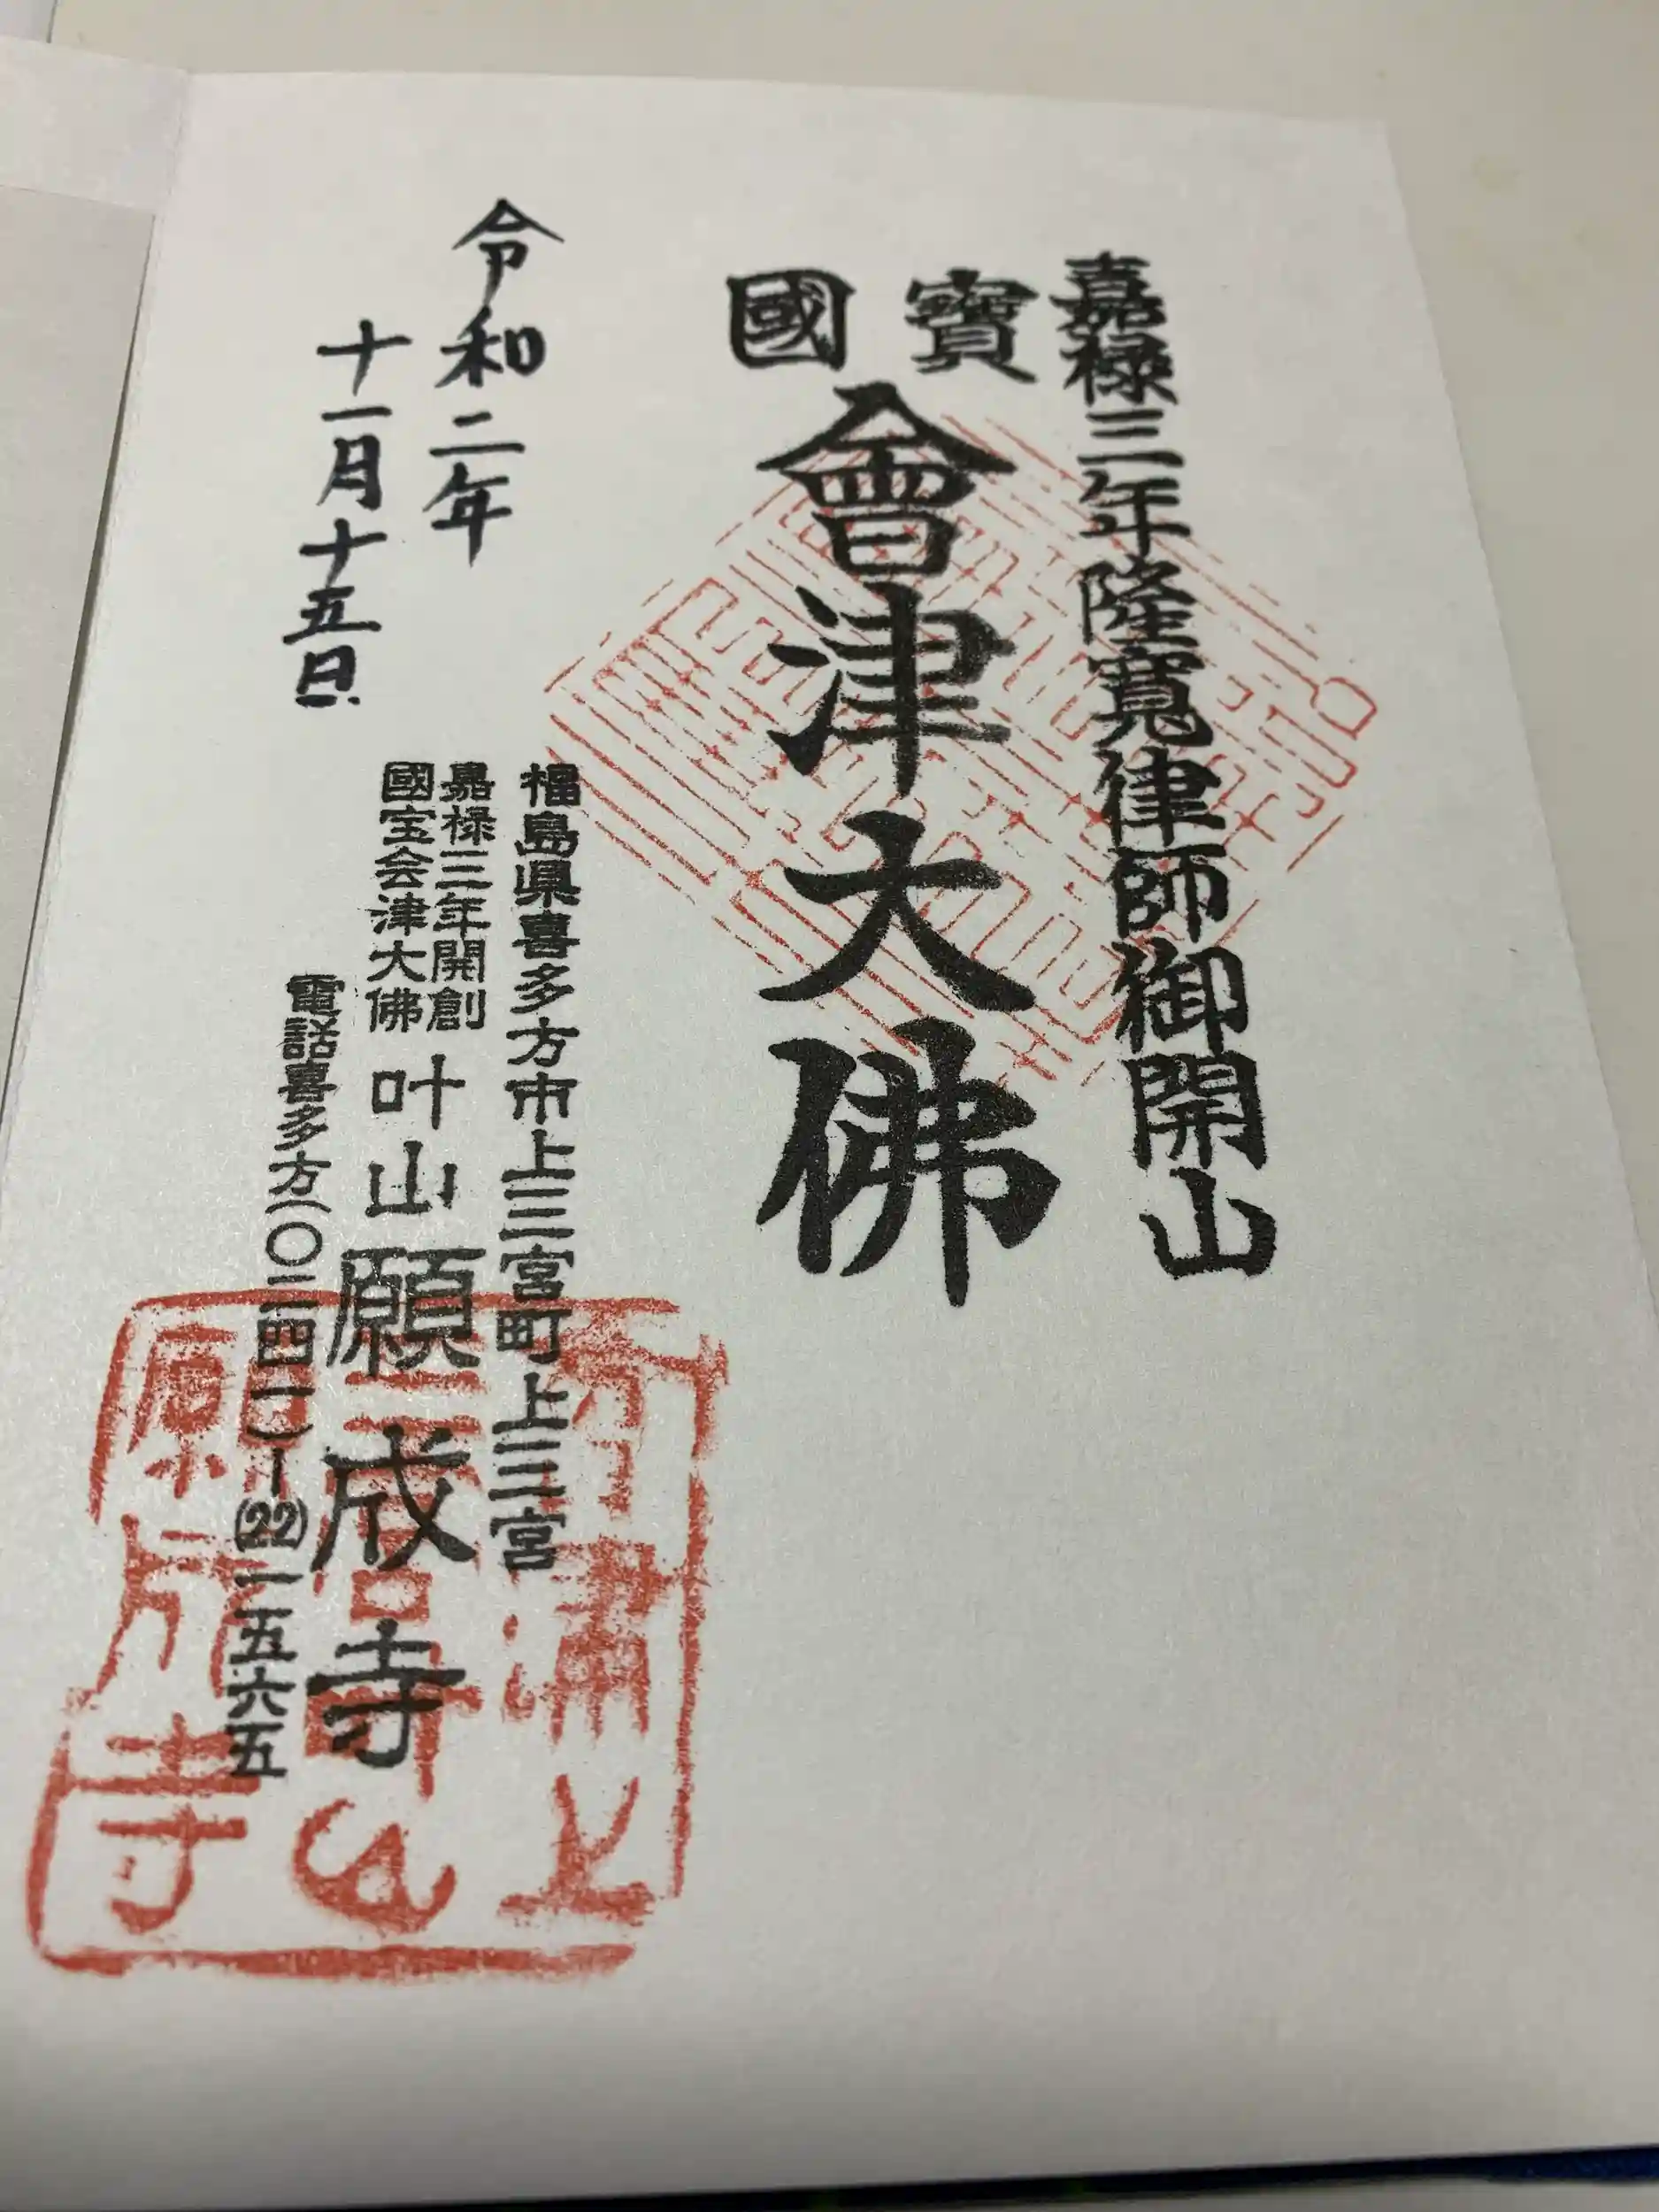 嘉禄三年隆寛律師御開山
國寶
會津大佛
令和二年
十一月十五日
福島県喜多方市上三宮町上三宮
嘉禄三年開創
國宝会津大佛
叶山願成寺
電話喜多方(〇二四一)ー(22)一五六五
願成寺